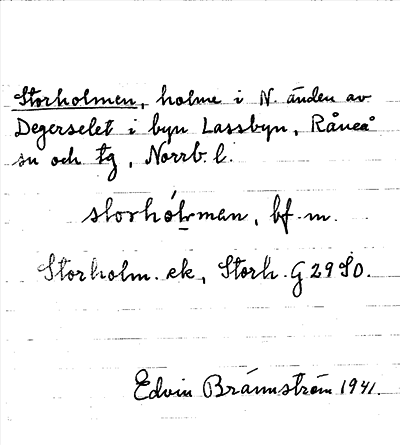 Storholmen, holme i N. änden av
Degerselet i byn Lassbyn, Råneå
sn och tg, Norrb. l.
storhólman, bf. m.
Storholm. ek, Storh. G 29 SO.
Edvin Brännström 1941.